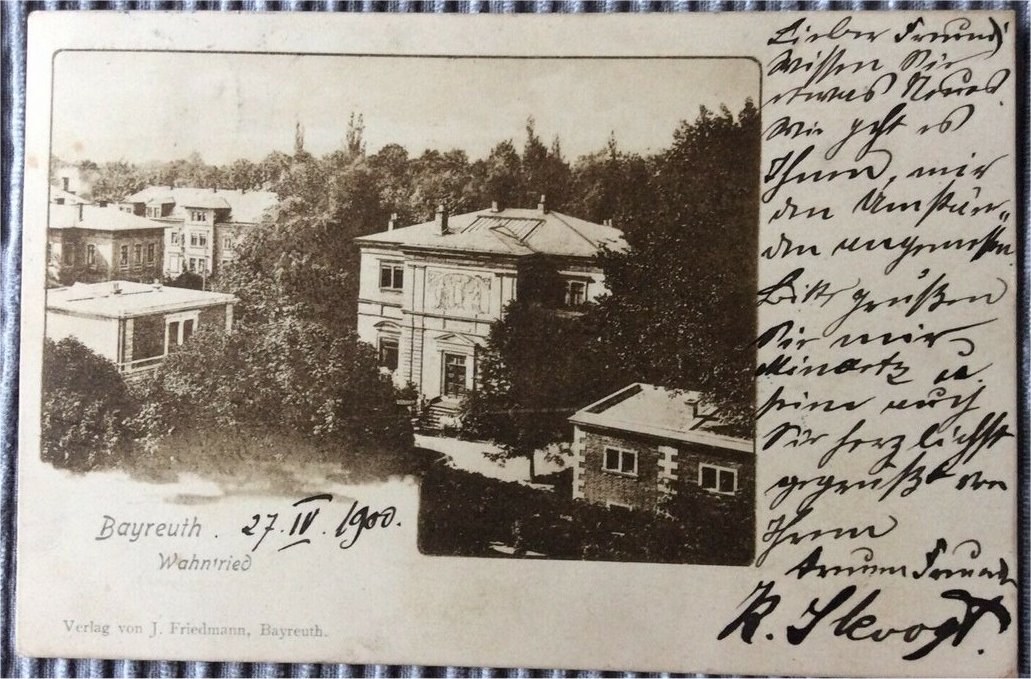 Lieber Freund!
Wissen Sie
etwas Neues.
Wie geht es
Ihnen, mir
den Umstän„
den angemessen.
Bitte grüßen
Sie mir
u.
seien auch
Sie herzlichst
gegrüßt von
Ihrem
Freunde
K. Skvogt.
Bayreuth. 27. IV. 1900.
Wahnfried
Verlag von J. Friedmann, Bayreuth.